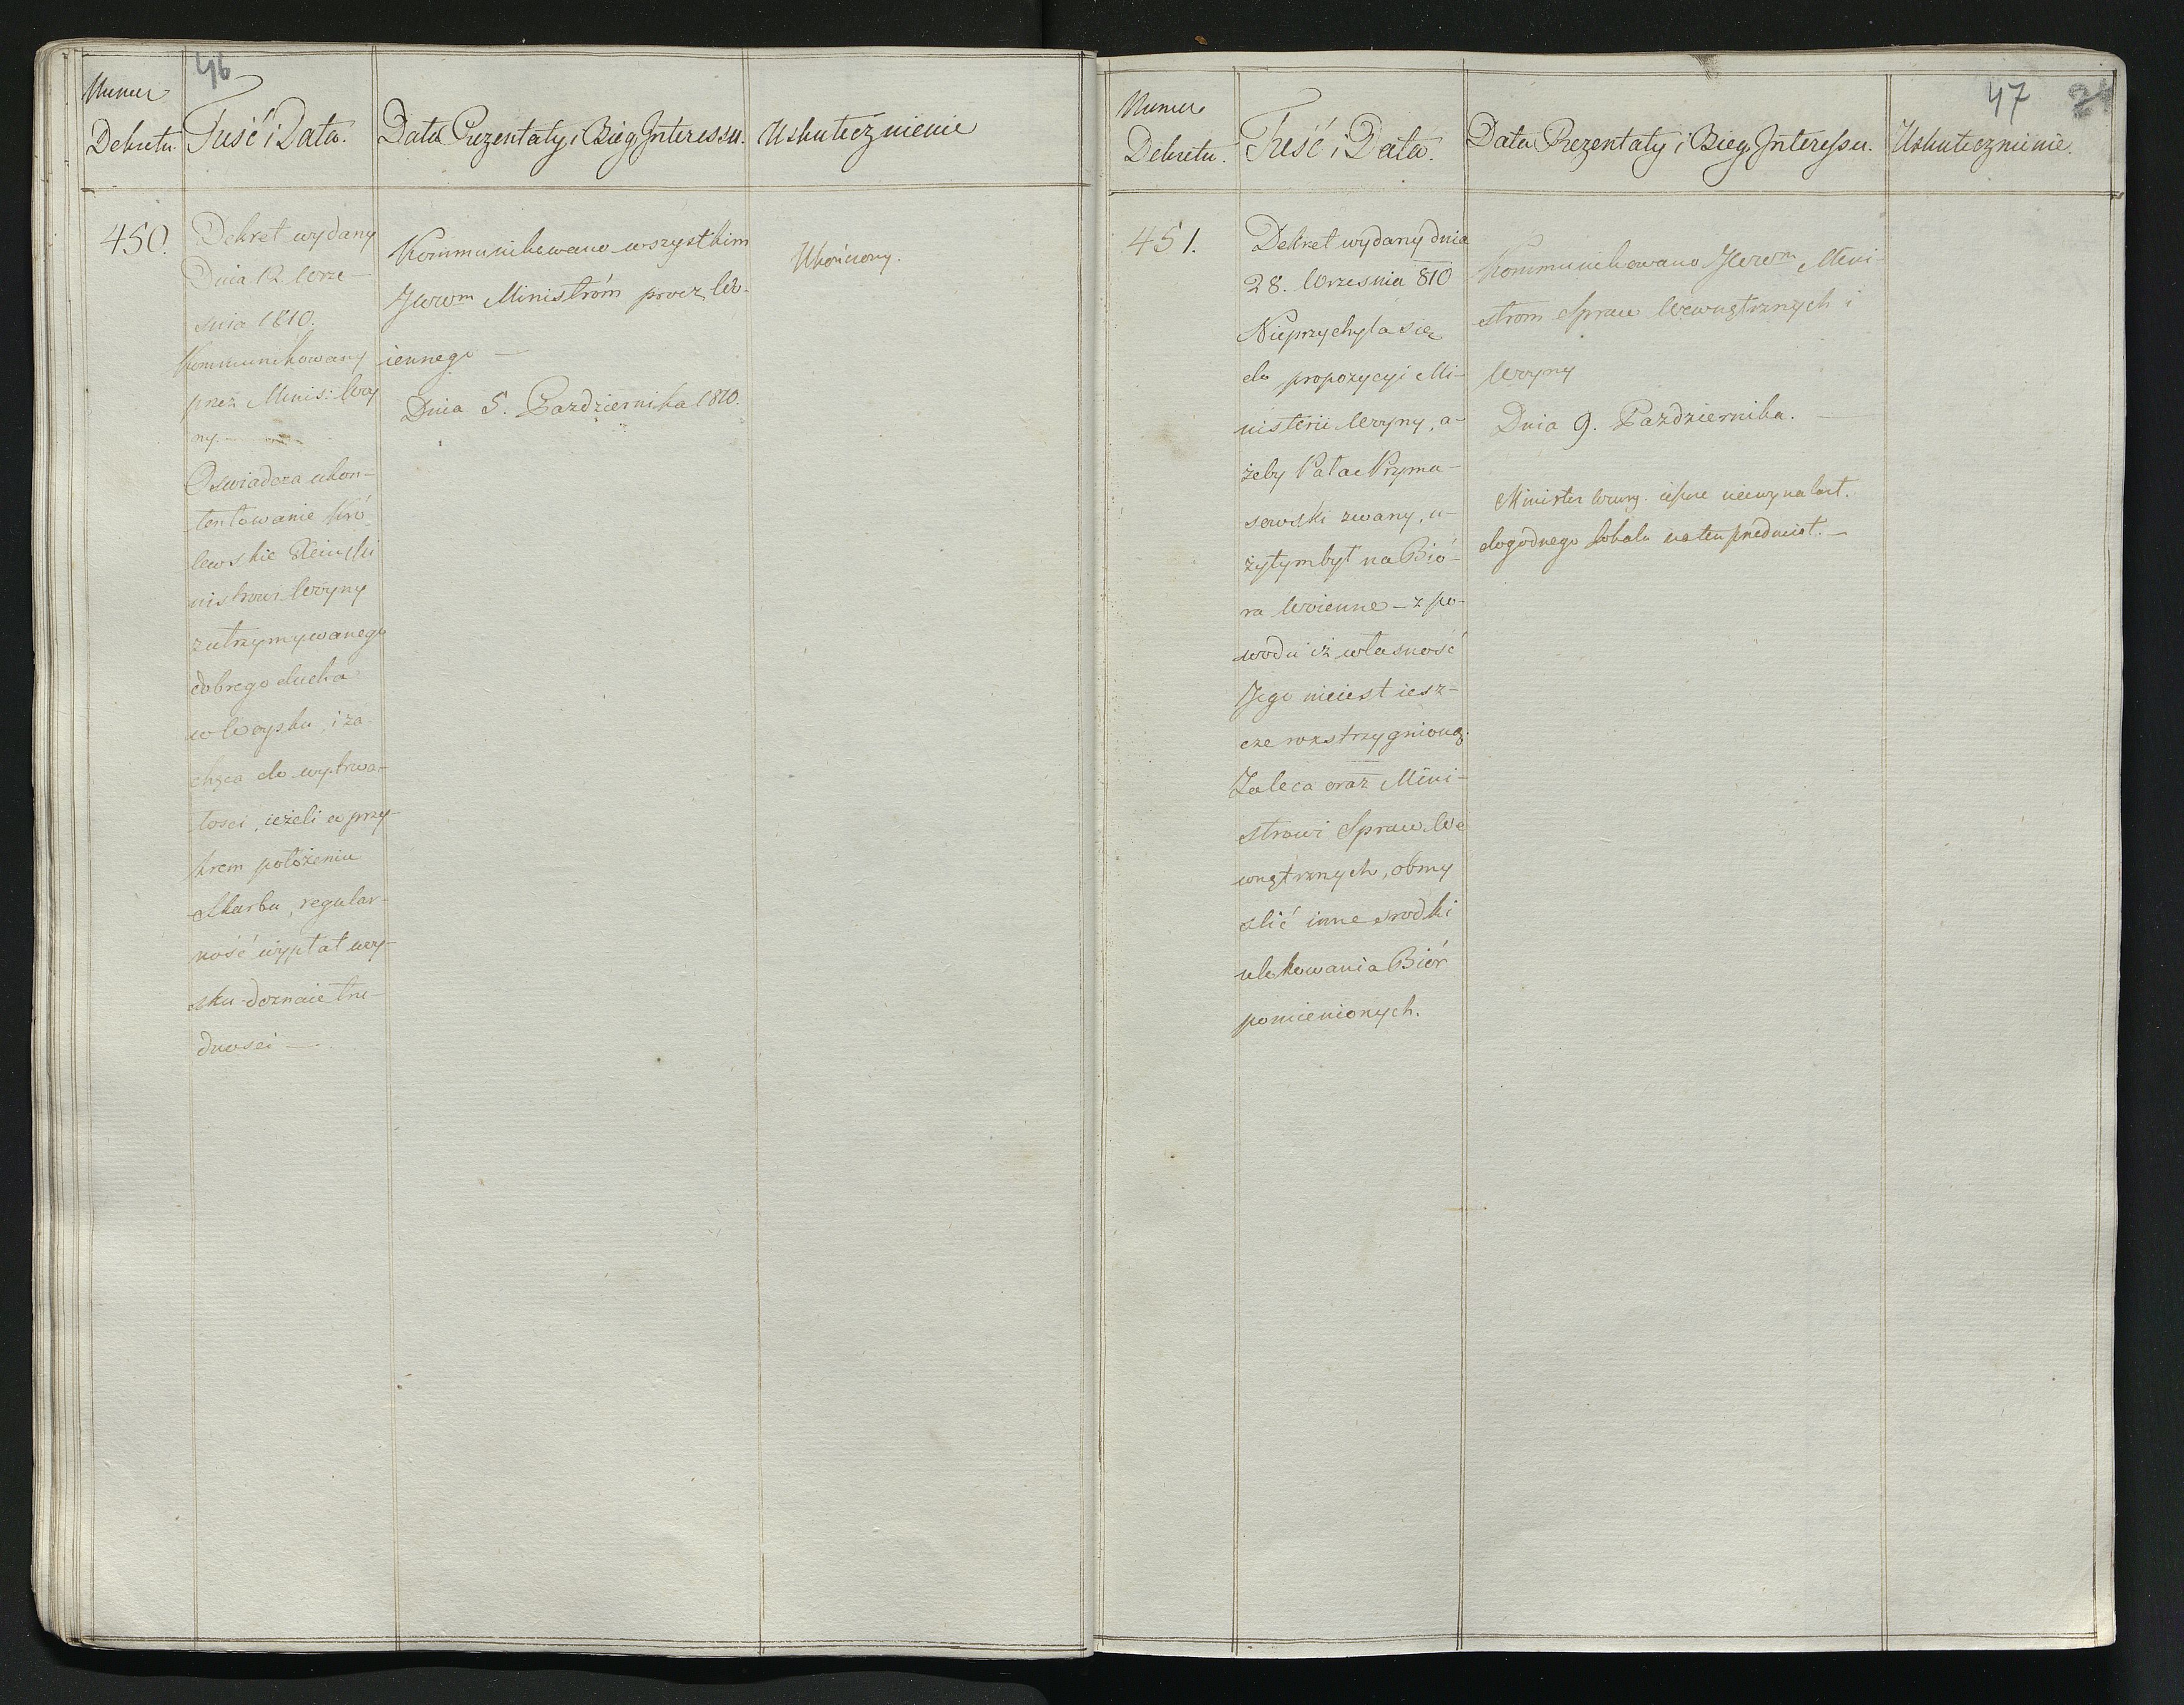 46
Numer
Dekretu.
Treść i Data.
Data Prezentaty i Bieg Interessu.
Uskutecznienie
450.
Dekret wydany
Dnia 12 Wrze-
śnia 1810.
Kommunikowany
przez Minis: Woy
ny.
Oswiadcza ukon-
tentowanie Kró
lewskie
nistrowi Woyny
z utrzymywanego
dobrego ducha
w Woysku, i za
chęca do wytrwa-
łosci, ieżeli w przy-
krem położeniu
Skarbu, regular-
ność wypłat woy-
sku doznaie tru-
dnosci —
Kommunikowano wszystkim
JWWm Ministróm procz Wo-
iennego —
Dnia 5. Pazdziernika 1810.
Ukończony.
47
Numer
Dekretu.
Treść i Data.
Data Prezentaty i Bieg Interessu.
Uskutecznienie.
451.
Dekret wydany dnia
28. Wrzesnia 810
Nieprzychyla się
do propozycyi Mi-
nisterii Woyny, a-
żeby Pałac Pryma-
sowski zwany, u-
żytym był na Bió-
ra Woienne – z po-
wodu iż własność
Jego nieiest iesz-
cze rozstrzygnioną.
Zaleca oraz Mini-
strowi Spraw We
wnętrznych, obmy
slić inne srodki
ulokowania Biór
pomienionych.
Kommunikowano JWWm Mini-
strom Spraw Wewnętrznych i
Woyny
Dnia 9. Pazdziernika. —
Minister Wewng. ieszcze niewynalazł.
dogodnego lokalu na ten przedmiot. —